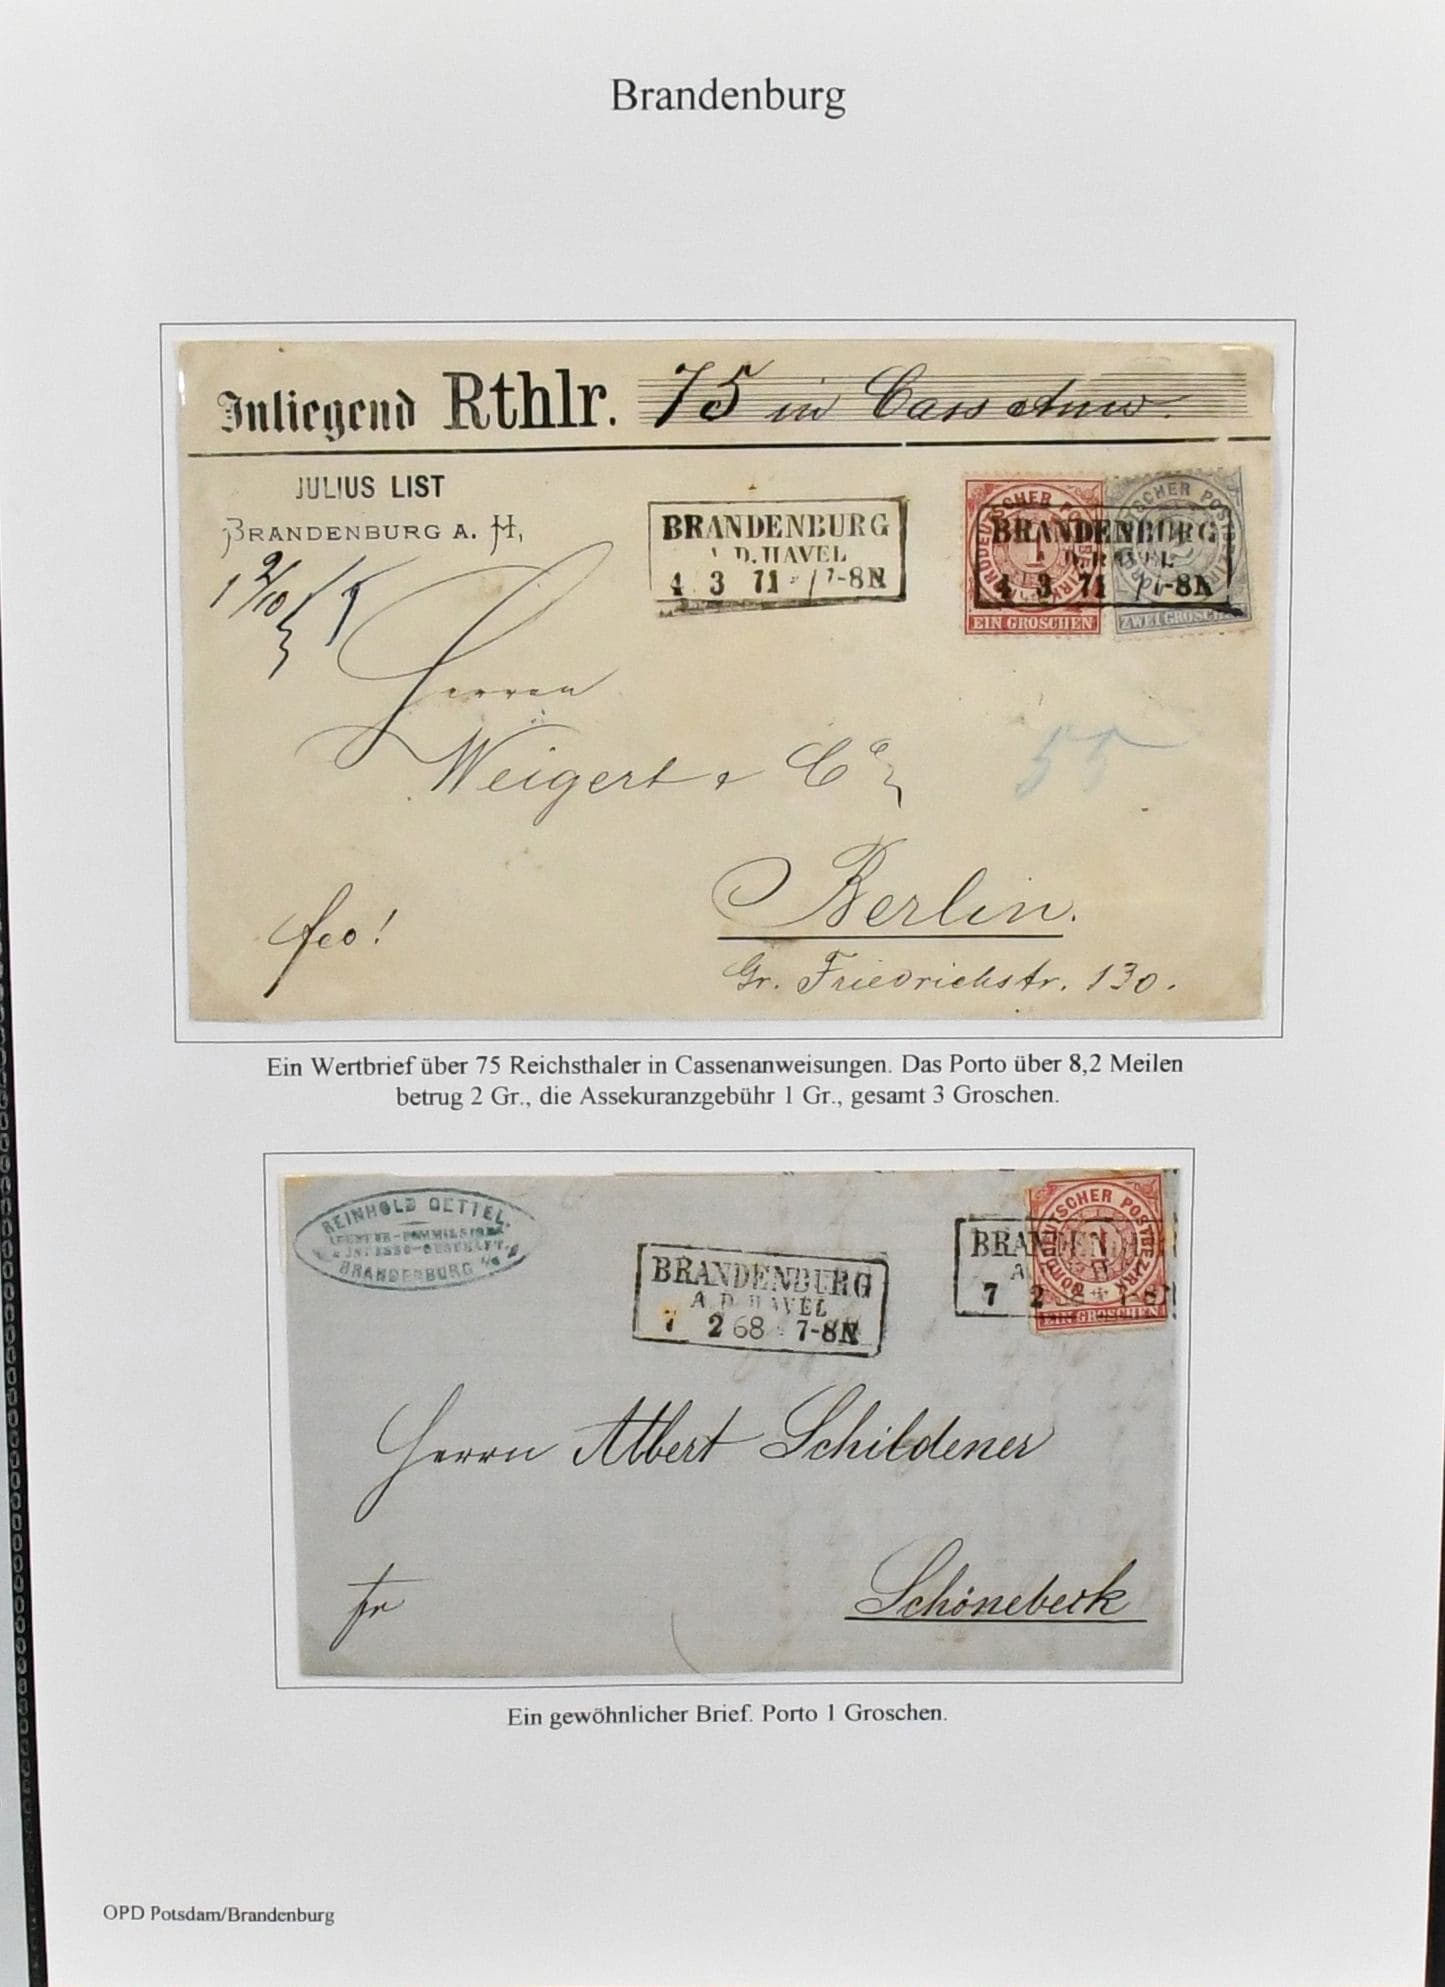 Brandenburg
Inliegend Rthlr. 75 in Cass Anw.
JULIUS LIST
BRANDENBURG A. H,
BRANDENBURG
A.D. HAVEL
4 3 71 7-8N
BRANDENBURG
4 3 71 7-8N
NORDDEUTSCHER POSTBEZIRK
1
EIN GROSCHEN
ZWEI GROSCHEN
Herren
Weigert & Co
55
Berlin.
fco!
Gr. Friedrichstr. 130.
Ein Wertbrief über 75 Reichsthaler in Cassenanweisungen. Das Porto über 8,2 Meilen
betrug 2 Gr., die Assekuranzgebühr 1 Gr., gesamt 3 Groschen.
REINHOLD OETTEL.
BRANDENBURG a/H
BRANDENBURG
A.D. HAVEL
7 2 68 7-8N
BRANDENBURG
7 2 68 7-8N
NORDDEUTSCHER POSTBEZIRK
1
EIN GROSCHEN
Herrn Albert Schildener
fr
Schönebeck
Ein gewöhnlicher Brief. Porto 1 Groschen.
OPD Potsdam/Brandenburg